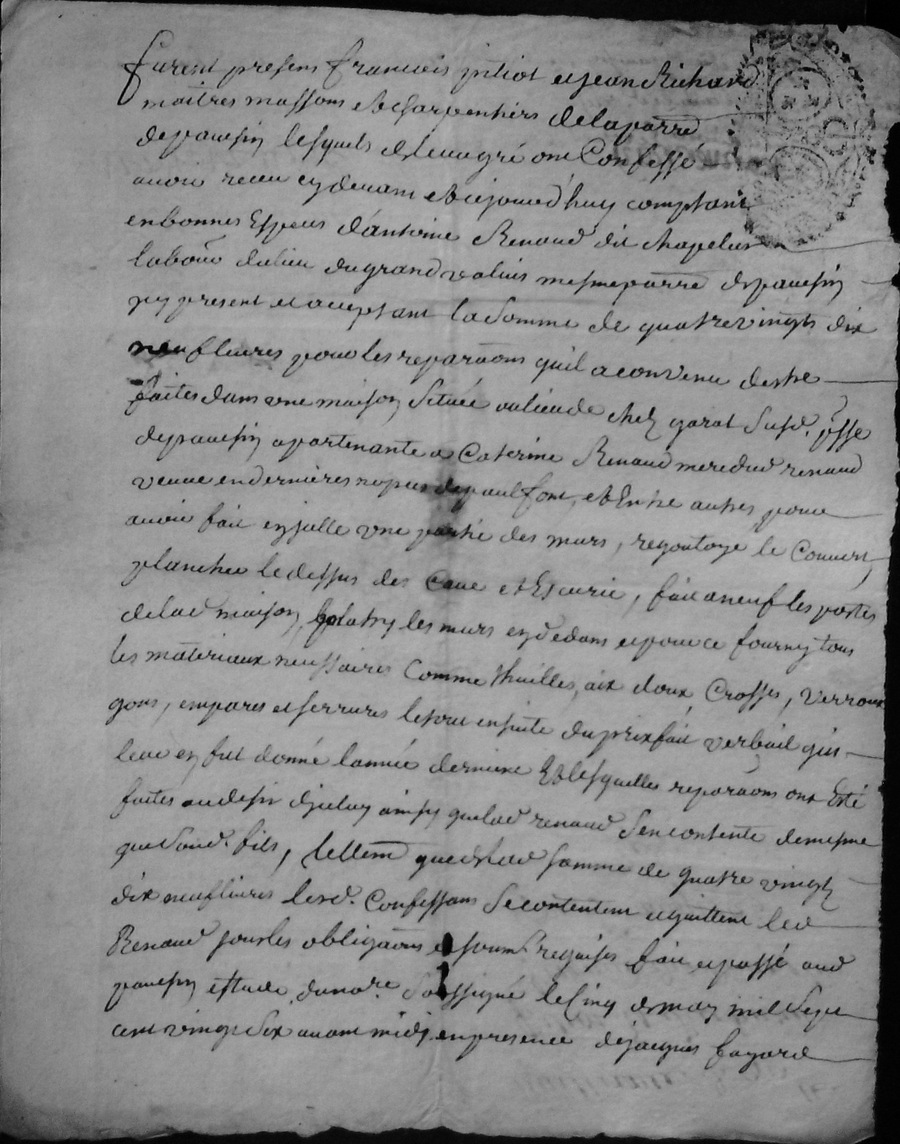 furent presens francois jntiot et jean Richard
maitres massons et charpentiers de la parre
de pauesin lesquels de leur gré ont Confessé
auoir receu cy deuant et aujourd'huy comptant
en bonnes Espeus d'antoine Renaud dit chapelier
labour du lieu du grand valuis mesme parre de pauesin
jcy present et acceptant la somme de quatre vingts dix
neuf liures pour les reparaons qu'il a convenu destre
faites dans une maison située au lieu de chez garat susd. psse
de pauesin apartenante a Caterine Renaud mere dud renaud
veuue en dernieres nopces de paul font, et Entre autres pour
auoir fait en salle une partie des murs, regoutoye le Couuert
plancher le dessus des Caue et Escurie, fait a neuf les portes
de lad maison, platry les murs en dedans et pour ce fourny tous
les materiaux neussaires Comme thuilles, aix cloux, Crosses, verroux
gons, empares et serrures le tout en suite du prixfait verbail qui
leur en fut donné l'année derniere Et lesquelles reparaons ont Esté
faites au desir d'jceluy ainsy que led renaud s'en contente de mesme
que sond. fils, tellem que de lad somme de quatre vingt
dix neuf liures lesd. Confessans se contentent et quittent led
Renaud sous les obligaons et soum requises fait et passé aud
pauesin estude du nore soussigné le Cinq de may mil sept
cent vingt six auant midy en presence de jacques fayard